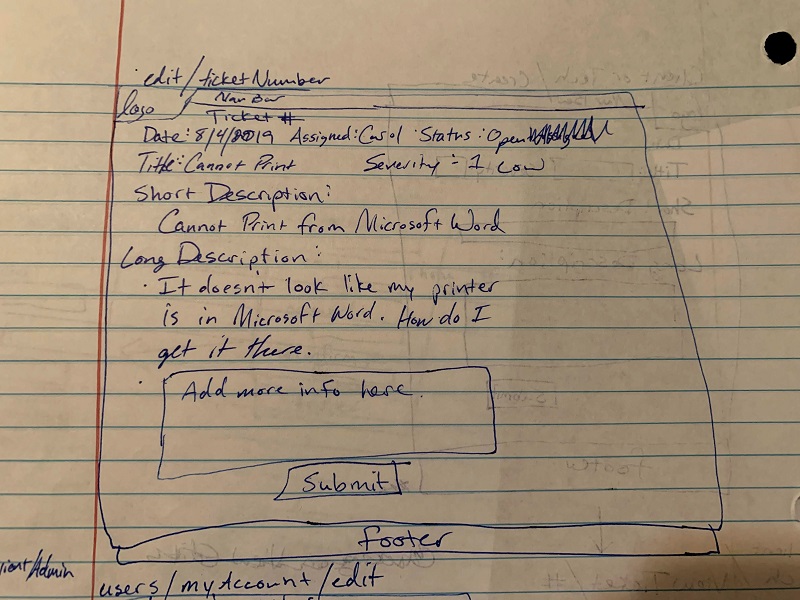 edit/ticketNumber
logo
Nav Bar
Ticket #
Date: 8/4/2019 Assigned: Carol Status: Open
Title: Cannot Print Severity: 1 Low
Short Description:
Cannot Print from Microsoft Word
Long Description:
· It doesn't look like my printer
is in Microsoft Word. How do I
get it there.
· Add more info here.
Submit
footer
/Admin
users/myAccount/edit